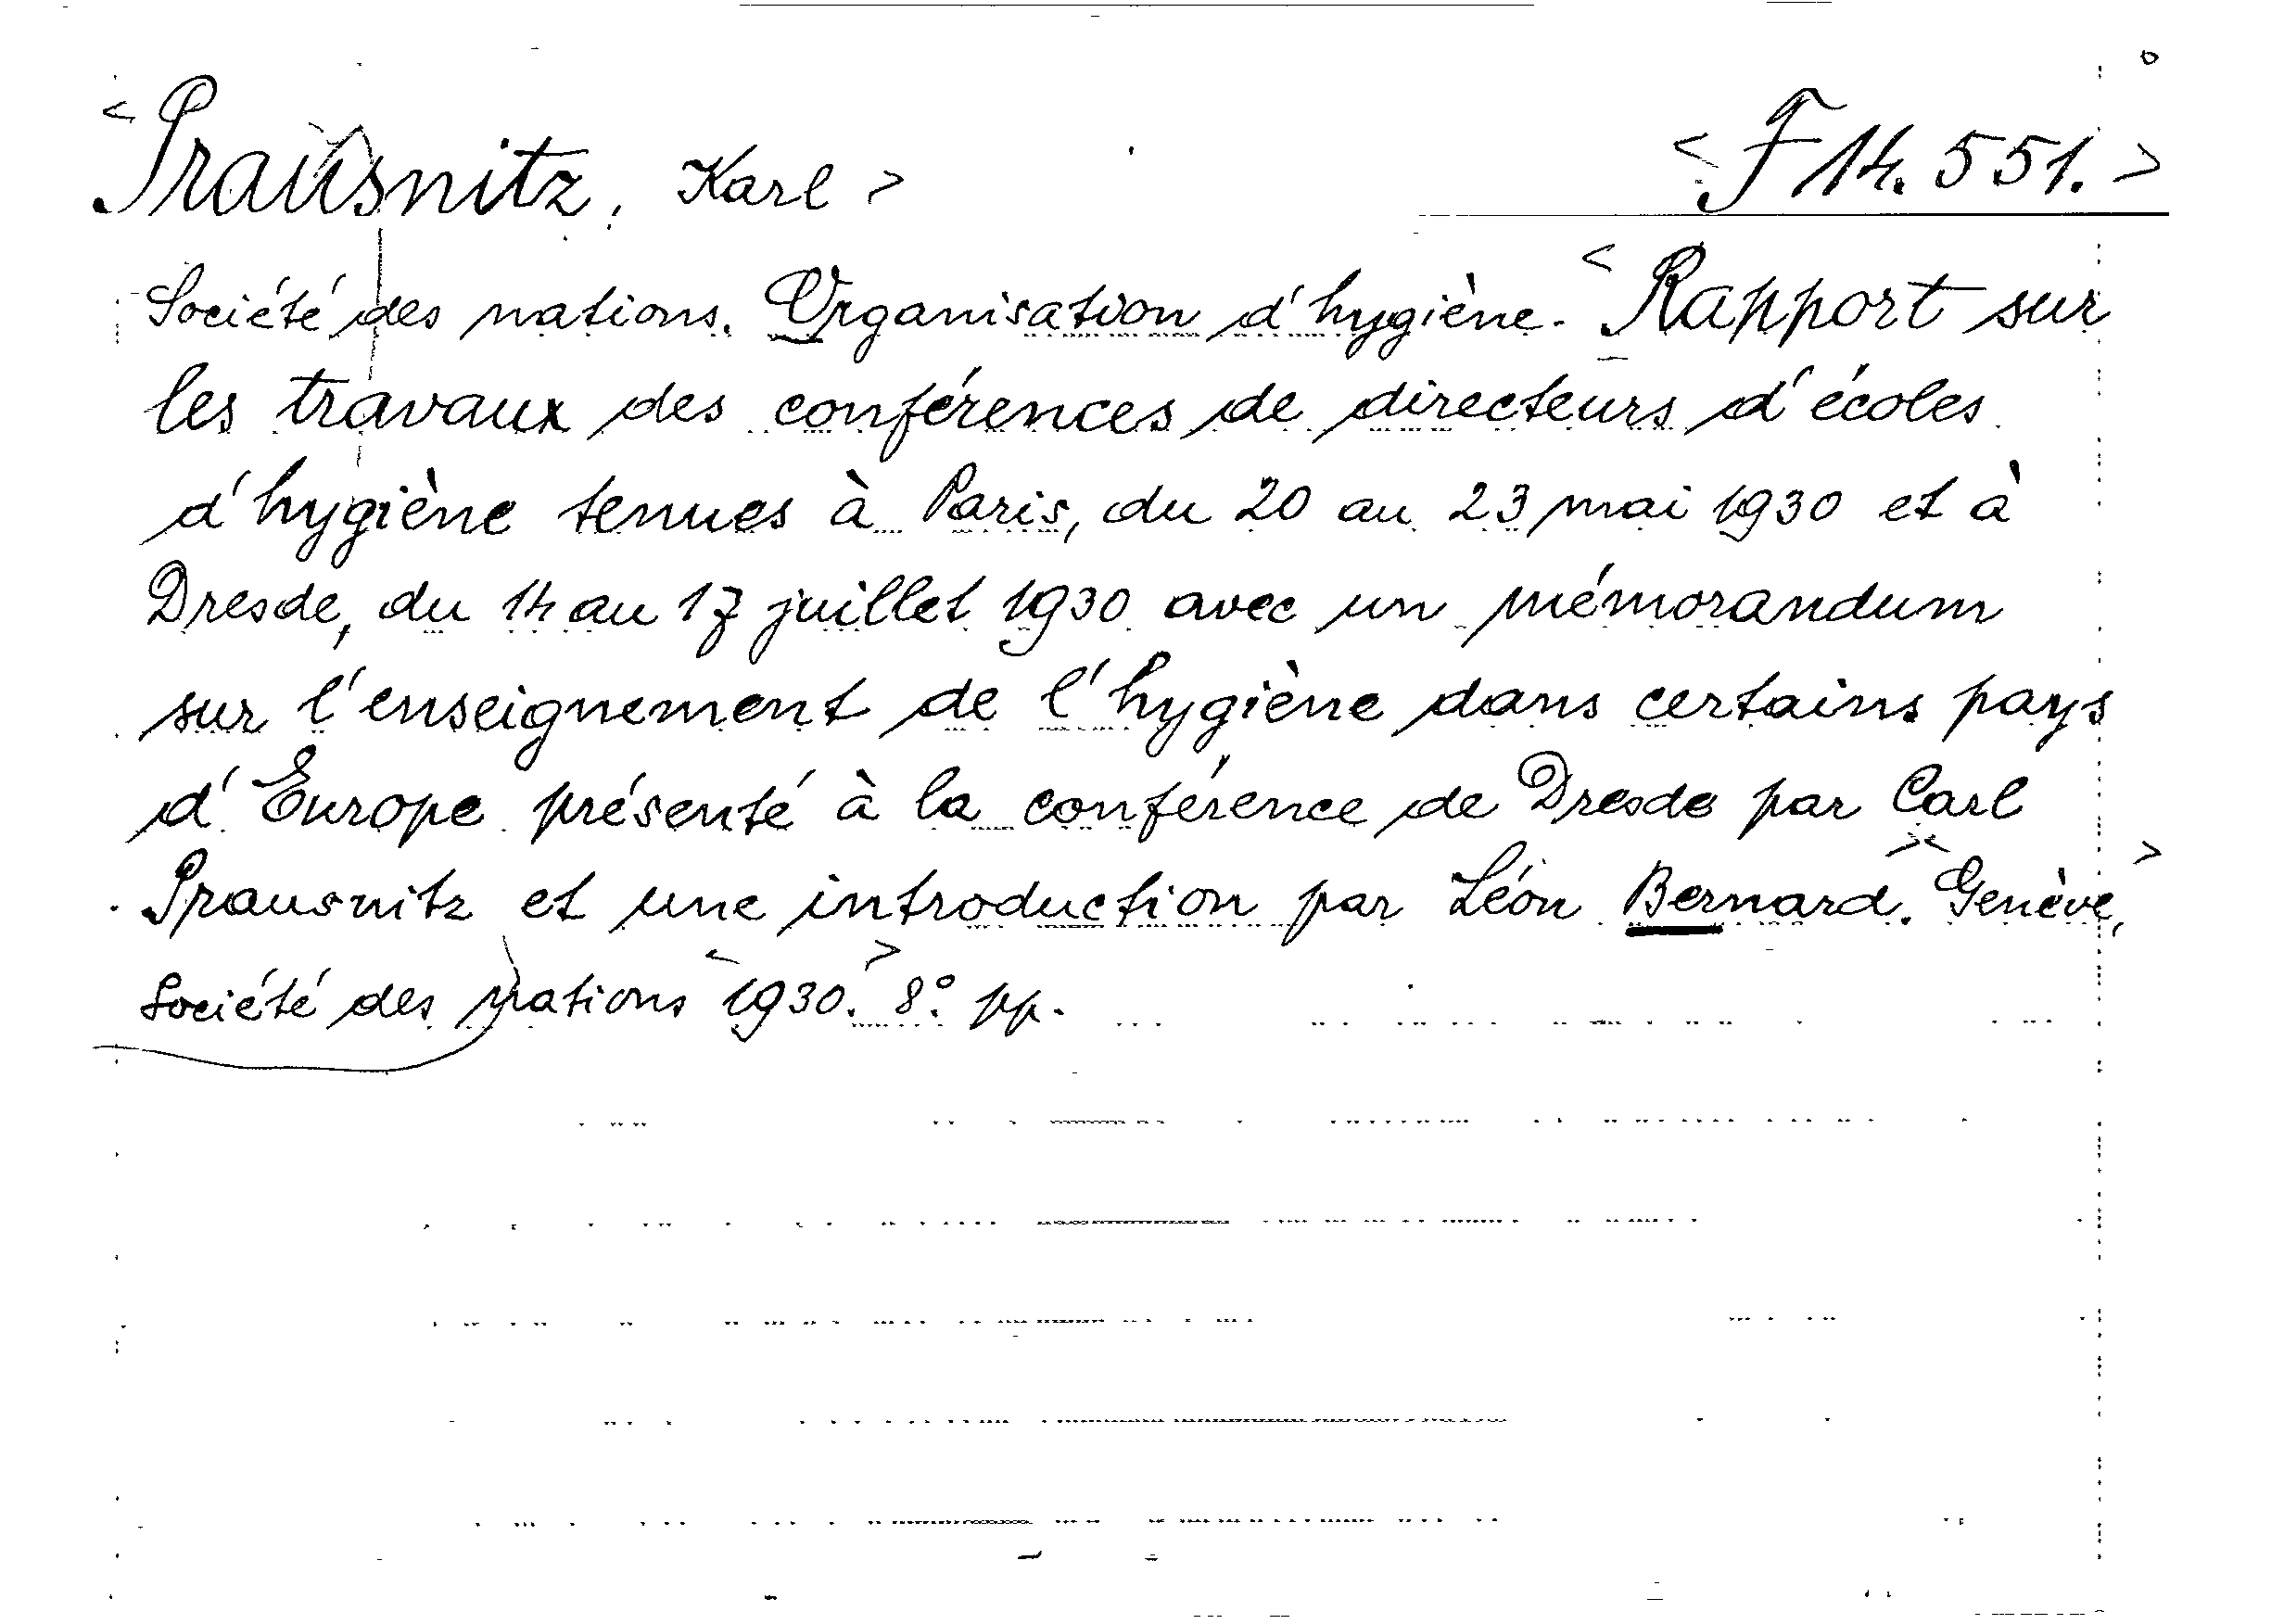 <Prausnitz, Karl>
<F 14.551.>
Société des nations. Organisation d'hygiène. <Rapport sur
les travaux des conférences de directeurs d'écoles
d'hygiène tenues à Paris, du 20 au 23 mai 1930 et à
Dresde, du 14 au 17 juillet 1930 avec un mémorandum
sur l'enseignement de l'hygiène dans certains pays
d'Europe présenté à la conférence de Dresde par Carl
Prausnitz et une introduction par Léon Bernard.>< Genève,>
Société des nations <1930.> 8° pp.